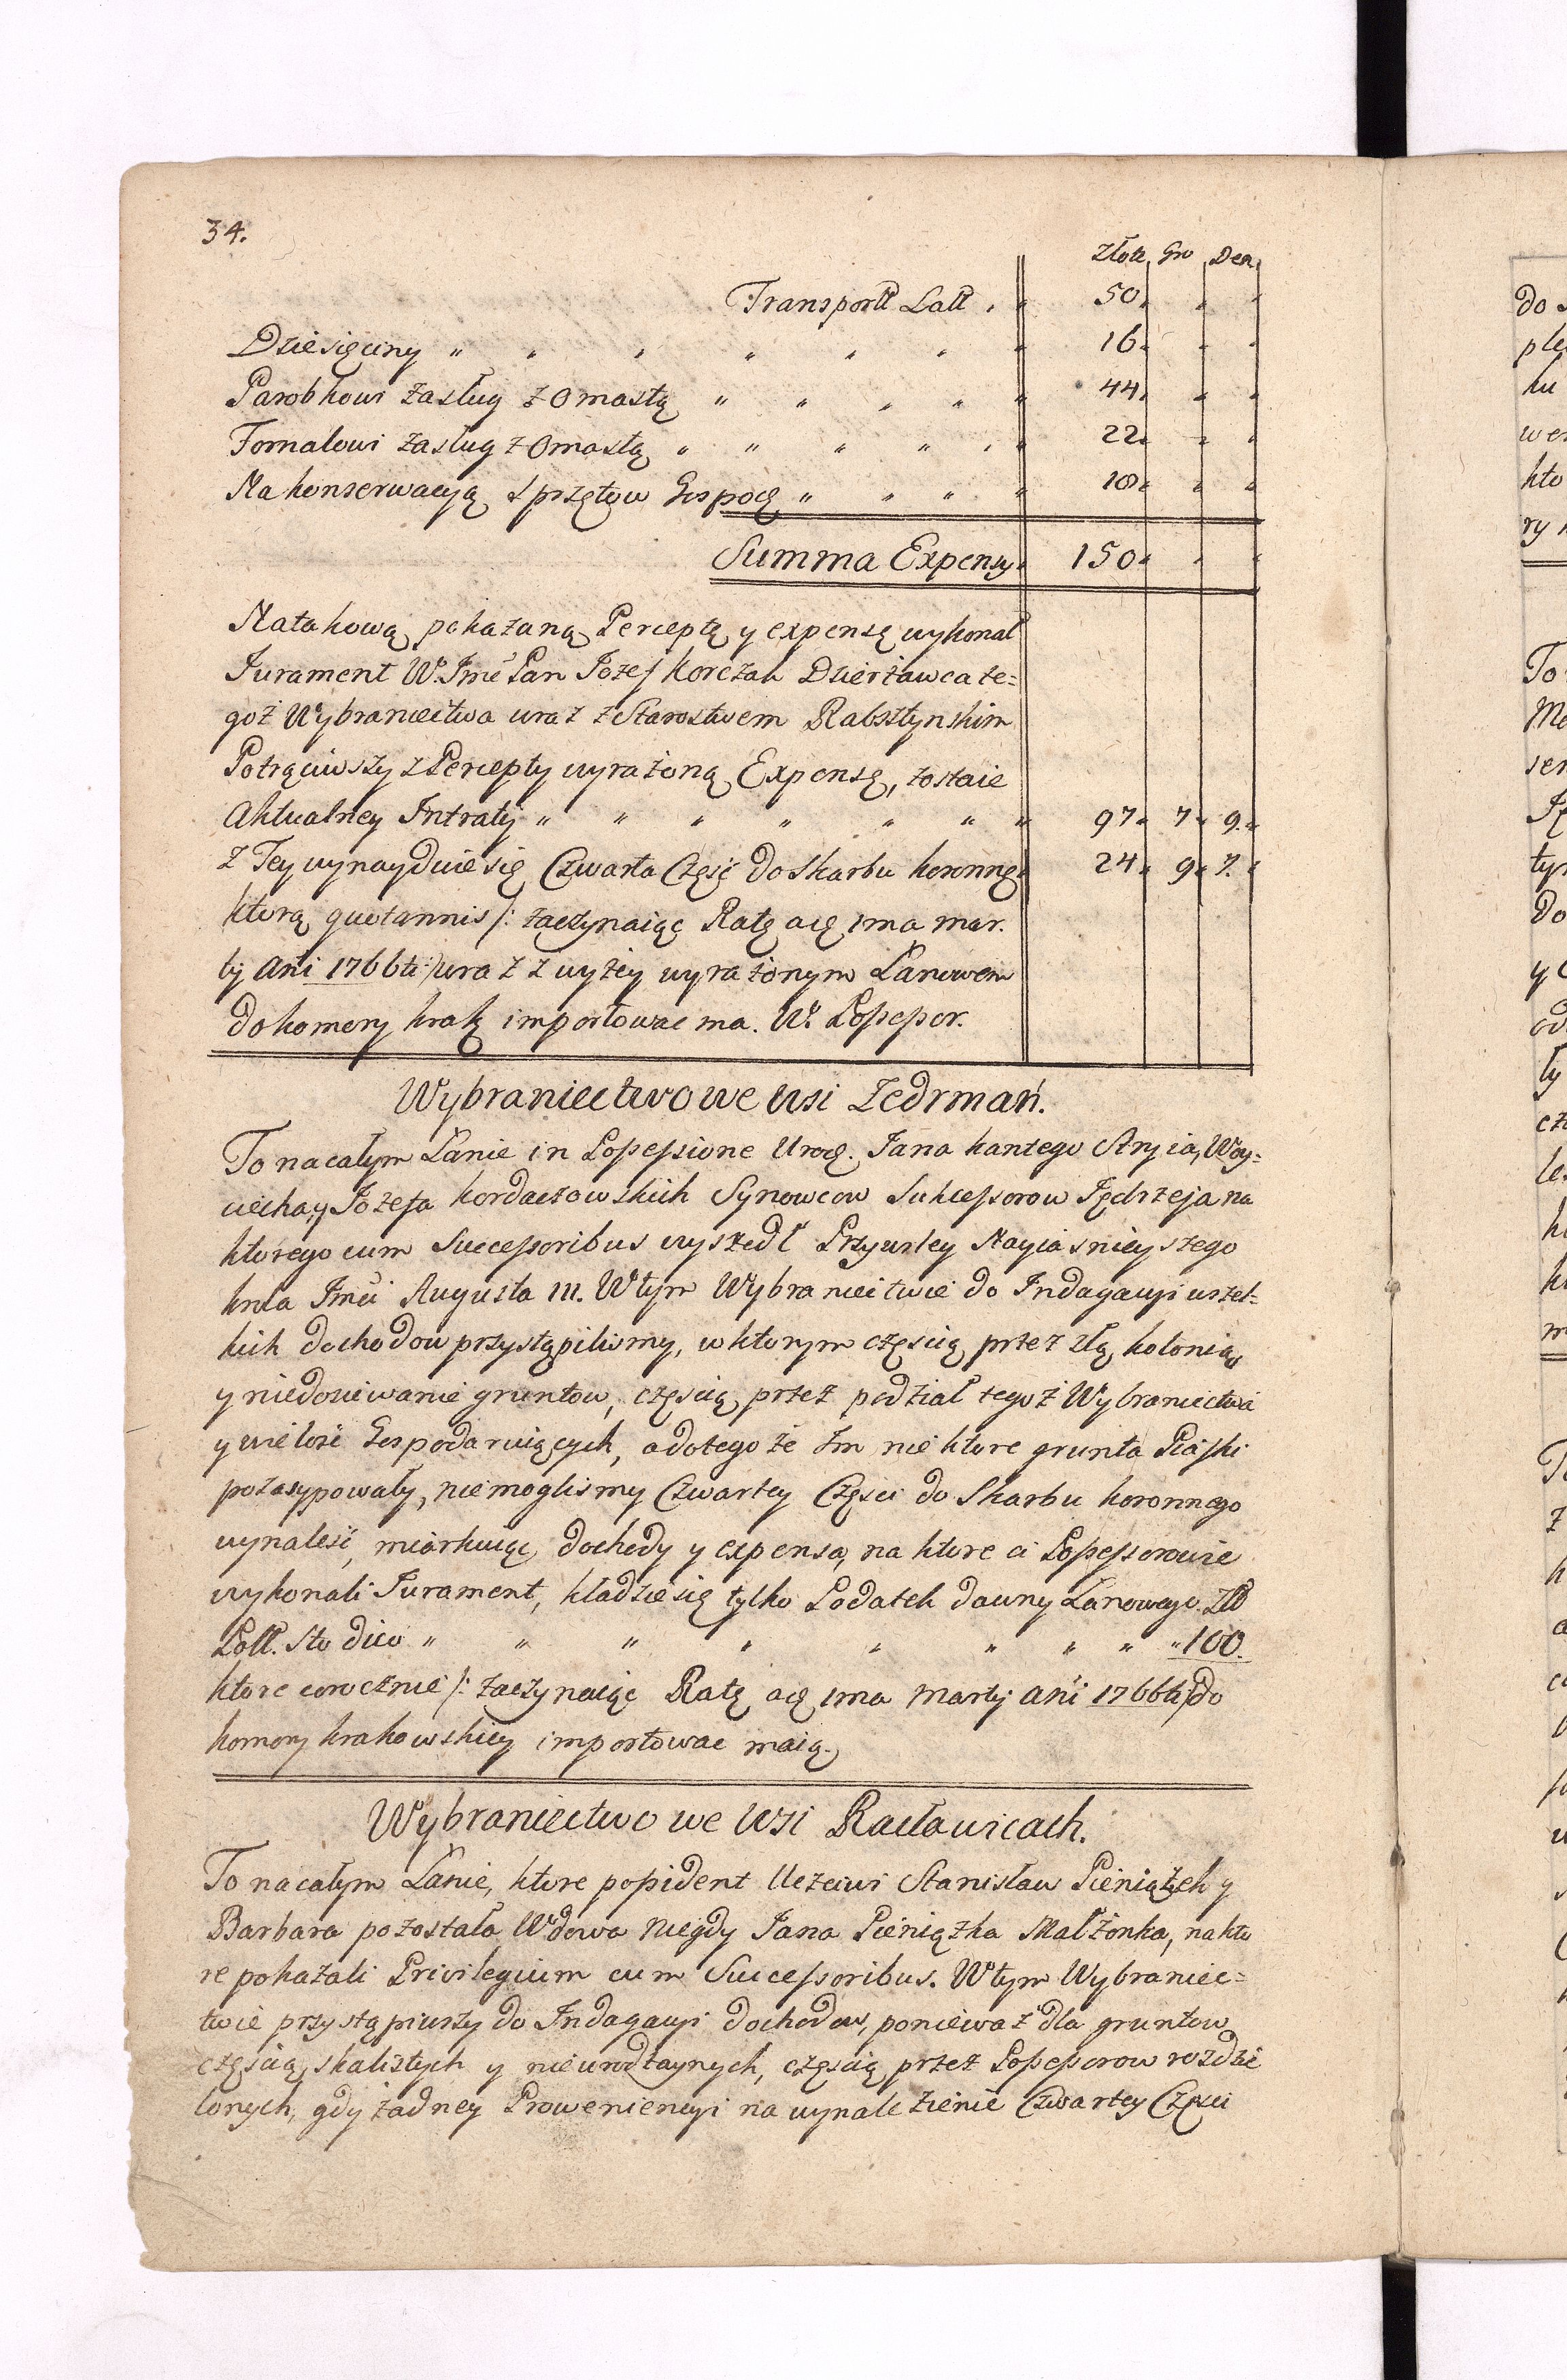 34.
Złote Gro Den
Transportt Latt " " 50 " "
Dziesięciny " " " " " " " 16 " "
Parobkowi zasług z Omastą " " " " " 44 " "
Fornalowi zasług z Omastą " " " " " 22 " "
Na konserwacyą sprzętow Gospod " " " " 18 " "
Summa Expensy 150 " "
Na takową pokazaną Perceptę y expensę wykonał
Jurament W. Jmć Pan Jozef Korczak Dzierżawca te=
goż Wybraniectwa wraz z Starostwem Rabsztynskim
Potrąciwszy z Percepty wyrażoną Expensę, zostaie
Aktualney Intraty " " " " " " " 97 " 7 " 9 "
z Tey wynayduie się Czwarta Część do Skarbu koronneg 24 " 9 " 7 "
ktorą quotannis /: zaczynaiąc Ratę ad 1ma mar.
tij Ani 1766ti :/ wraz z wyżey wyrażonym Łanowem
do komory krak importować ma. W. Possessor.
Wybraniectwo we Wsi Zedrmań.
To na całym Łanie in Possessione Urod. Jana kantego Stryia, Woy=
ciecha, y Jozefa kordaczowskich Synowcow Sukcessorow Jędrzeja na
ktorego cum Successoribus wyszedł Przywiley Nayiasnieyszego
krola Jmći Augusta III. W tym Wybraniectwie do Indagacyi wszel=
kich dochodow przystąpilismy, w ktorym częścią przez złą kolonią,
y niedosiewanie gruntow, częścią przez podział tegoż Wybraniectwa
y wielość Gospodaruiących, a do tego że Im nie ktore grunta Piaski
pozasypowały, niemoglismy Czwartey Części do Skarbu koronnego
wynalesć, miarkuiąc dochody y expensa, na ktore ci Possessorowie
wykonali Jurament, kładzie się tylko Podatek dawny Łanowego. Złł
Poll. Sto dico " " " " " " " " " 100.
ktore corocznie /: zaczynaiąc Ratę ad 1ma Martij Ani 1766ti :/ do
komory krakowskiey importować maią.
Wybraniectwo we Wsi Racławicach.
To na całym Łanie, ktore possident Uczciwi Stanisław Pieniążek y
Barbara pozostała Wdowa niegdy Jana Pieniązka Małżonka, na kto
re pokazali Privilegium cum Successoribus. W tym Wybraniec=
twie przystąpiwszy do Indagacyi dochodow, poniewaz dla gruntow
częścią skalistych y nieurodzaynych, częścią przez Possessorow rozdzie
lonych, gdy żadney Proweniencyi na wynalezienie Czwartey Części